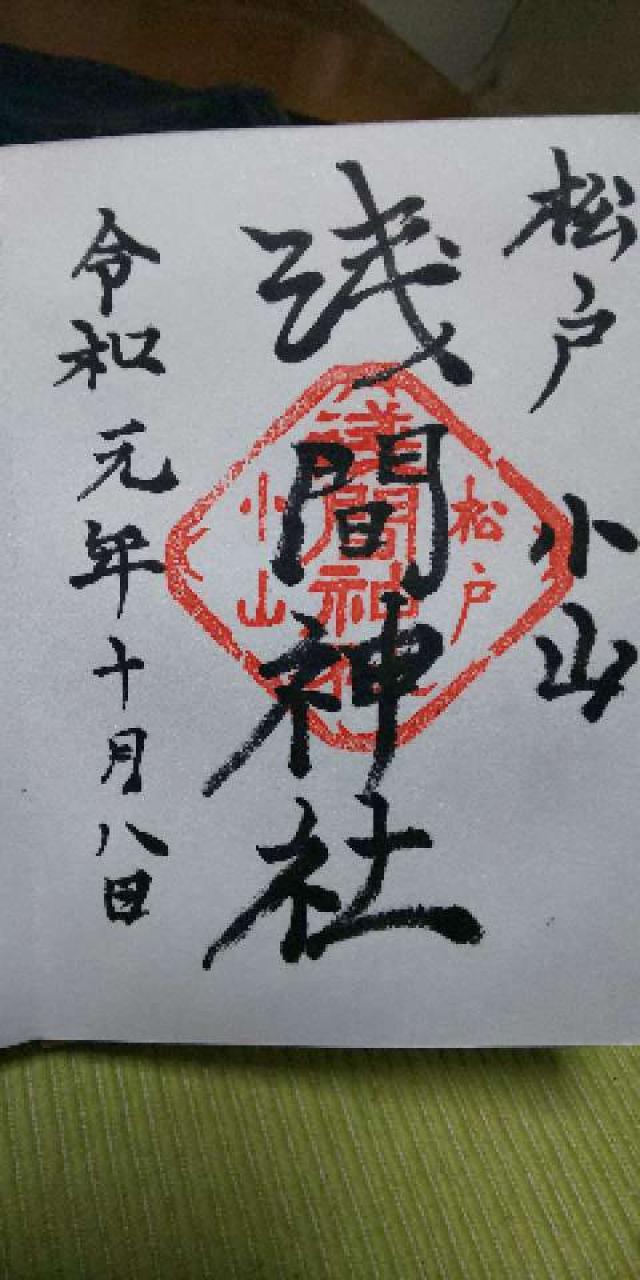 松戸 小山
浅間神社
令和元年十月八日
松戸
淺間神社
小山